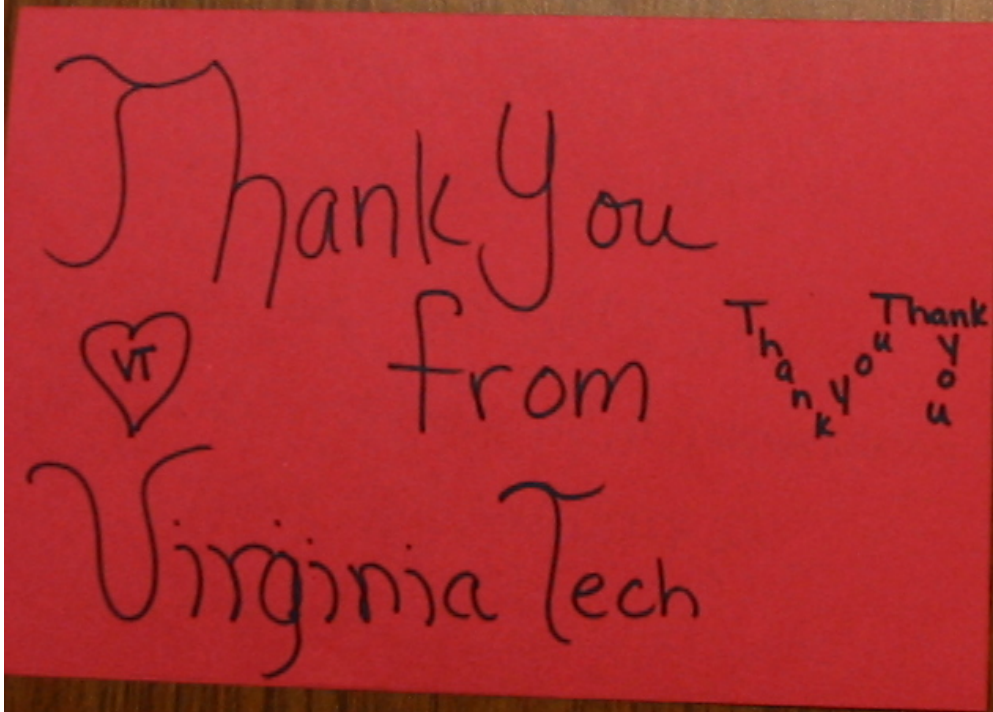 Thank You
from
VT
Thank you
Thank
you
Virginia Tech